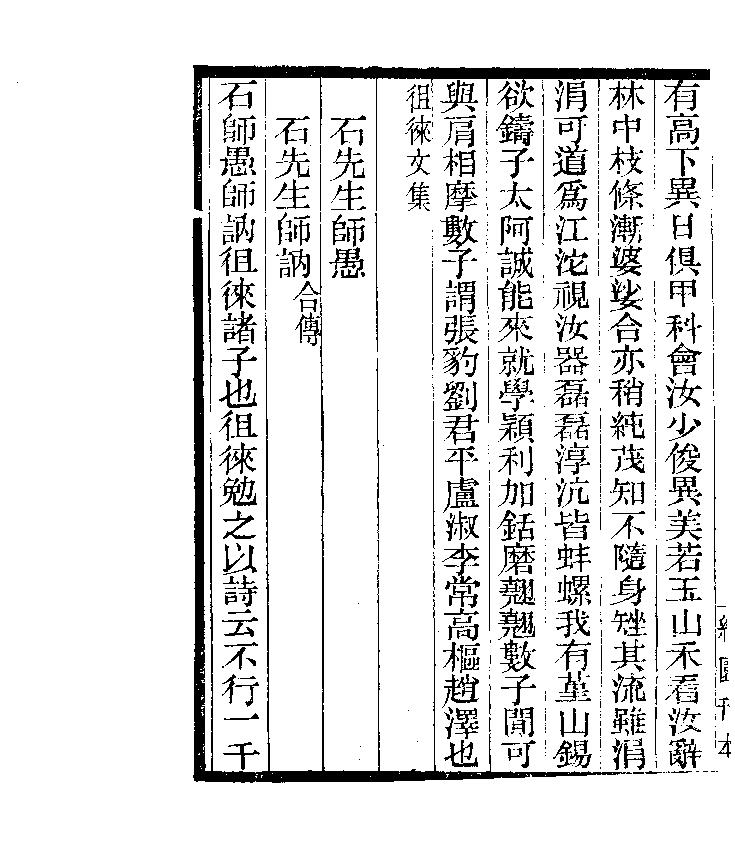 有高下異日俱甲科會汝少俊異美若玉山禾看汝辭
林中枝條漸婆娑合亦稍純茂知不隨身矬其流雖涓
涓可道爲江沱視汝器磊磊淳沆皆蚌螺我有堇山錫
欲鑄子太阿誠能來就學穎利加銛磨翹翹數子閒可
與肩相摩數子謂張豹劉君平盧淑李常高樞趙澤也
徂徠文集
石先生師愚
石先生師訥合傳
石師愚師訥徂徠諸子也徂徠勉之以詩云不行一千
約園刊本